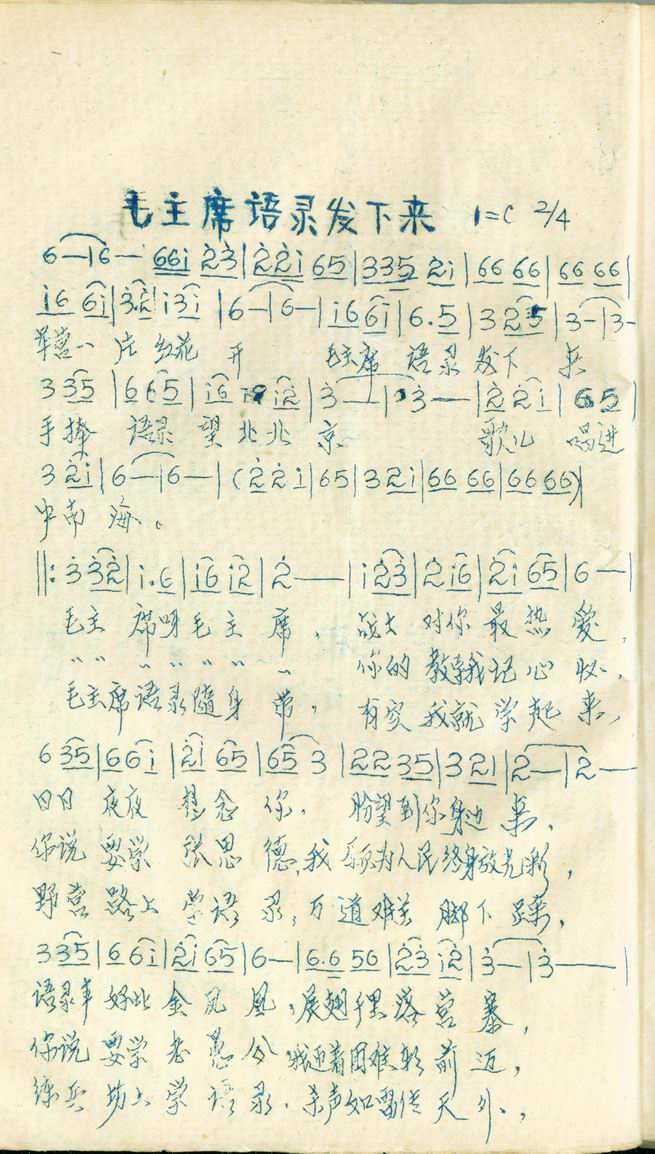 毛主席语录发下来 1=C 2/4
6—|6— 66i 23|22i 65|335 2i|66 66|66 66|
i6 6i|32|i3i|6—|6—|i6 6i|6.5|3 25|3—|3—
军营一片红花 开 毛主席 语录 发下 来
335|665|i6 i2|3—|3—|22i|65|
手捧 语录 望北北 京 歌儿 唱进
3 2i|6—|6—|(22i|65|32i|66 66|66 66)|
中南 海。
‖:3 32|i.6|i6 i2|2——|i23|2i6|2i 65|6—|
毛主 席呀毛 主 席, 战士 对你 最 热 爱,
〃〃 〃 〃 〃 〃 〃 你的 教导我记 心 怀,
毛主席语录随身 带, 有空 我就 学起 来,
6 35|66i|2i 65|65 3|22 35|3 21|2—|2—
日日 夜夜 想 念 你, 盼望到你身边 来,
你说 要学 张思 德,我 为人民终身放光彩,
野营 路上 学语 录,万道难关 脚下 踩,
335|66i|2i 65|6—|6.6 56|23 i2|3—|3——|
语录本 好比 金 凤 凰,展翅 落 营 寨,
你说 要学 老 愚 公 我迎着困难 前 迈,
练兵 场上 学 语 录,杀声如雷传 天 外,